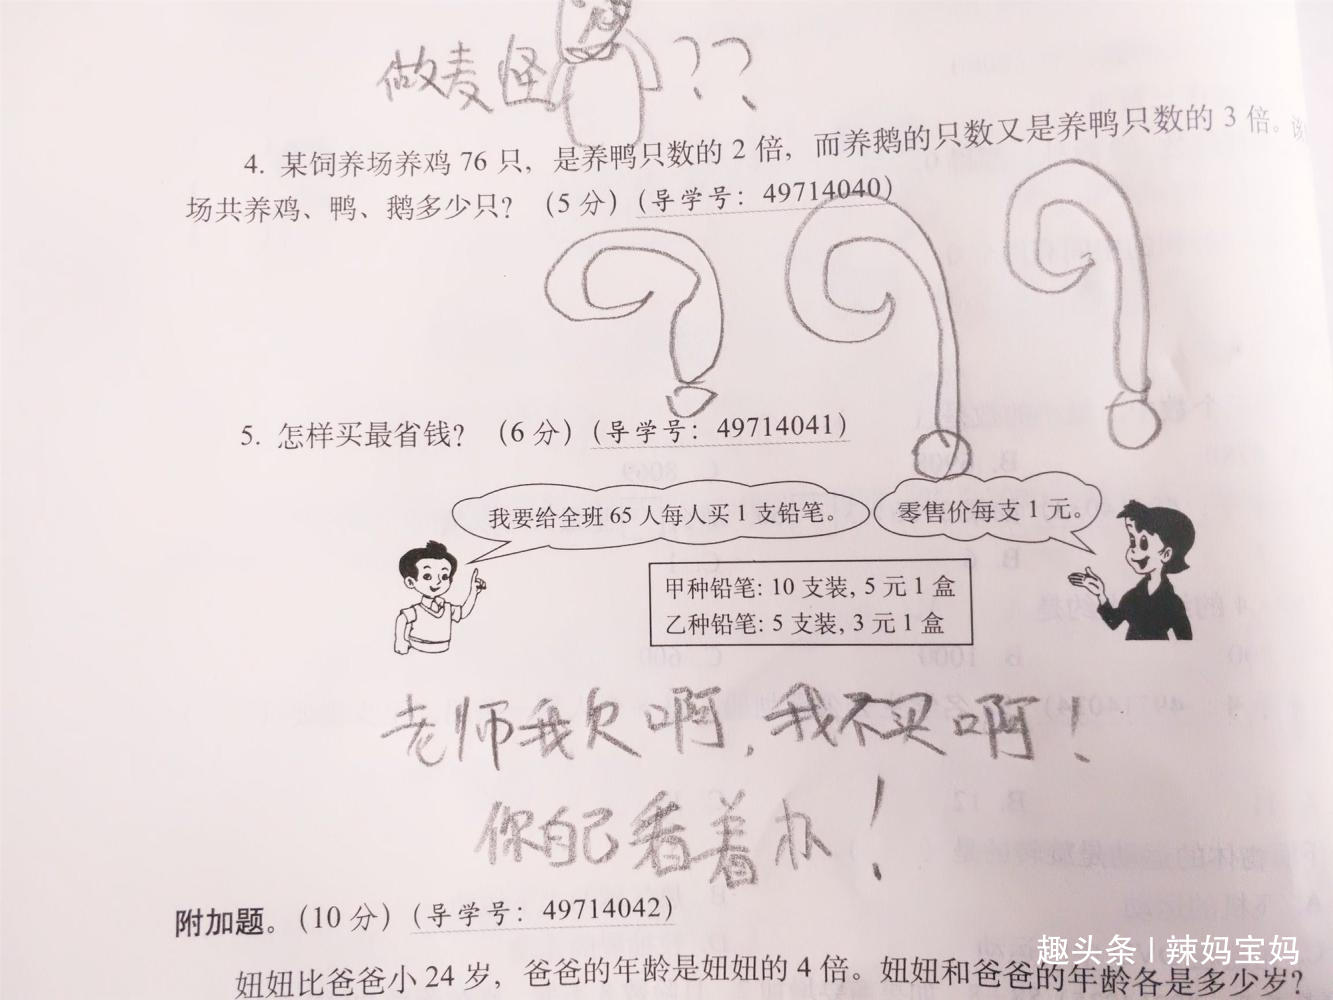 做麦怪??
4. 某饲养场养鸡 76 只，是养鸭只数的 2 倍，而养鹅的只数又是养鸭只数的 3 倍。该
场共养鸡、鸭、鹅多少只？（5 分）（导学号：49714040）
5. 怎样买最省钱？（6 分）（导学号：49714041）
我要给全班 65 人每人买 1 支铅笔。
零售价每支 1 元。
甲种铅笔: 10 支装, 5 元 1 盒
乙种铅笔: 5 支装, 3 元 1 盒
老师我欠啊,我不买啊!
你自己看着办!
附加题。（10 分）（导学号：49714042）
妞妞比爸爸小 24 岁，爸爸的年龄是妞妞的 4 倍。妞妞和爸爸的年龄各是多少岁？
趣头条 | 辣妈宝妈